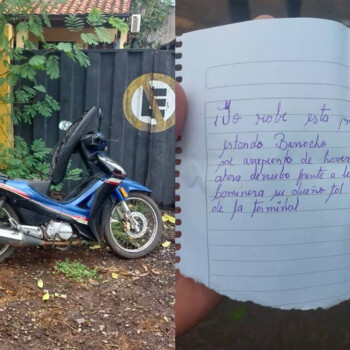 Yo robe esta m
estando Borracho
me arrepiento de haver
ahora devuelvo frente a la
Gominera su dueño tal
de la terminal